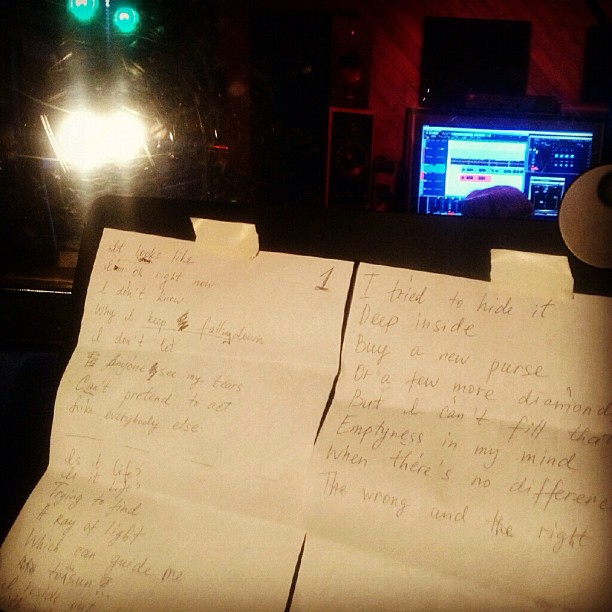 1
It looks like
ok right now
I don't know
Why I keep falling down
I don't let
Anyone see my tears
Can't pretend to act
like everybody else
Is it life
Is it life
Trying to find
A Ray of light
Which can guide me
inside out
I tried to hide it
Deep inside
Buy a new purse
Or a few more diamond
But I can't fill that
Emptyness in my mind
When there's no differenc
The wrong and the right